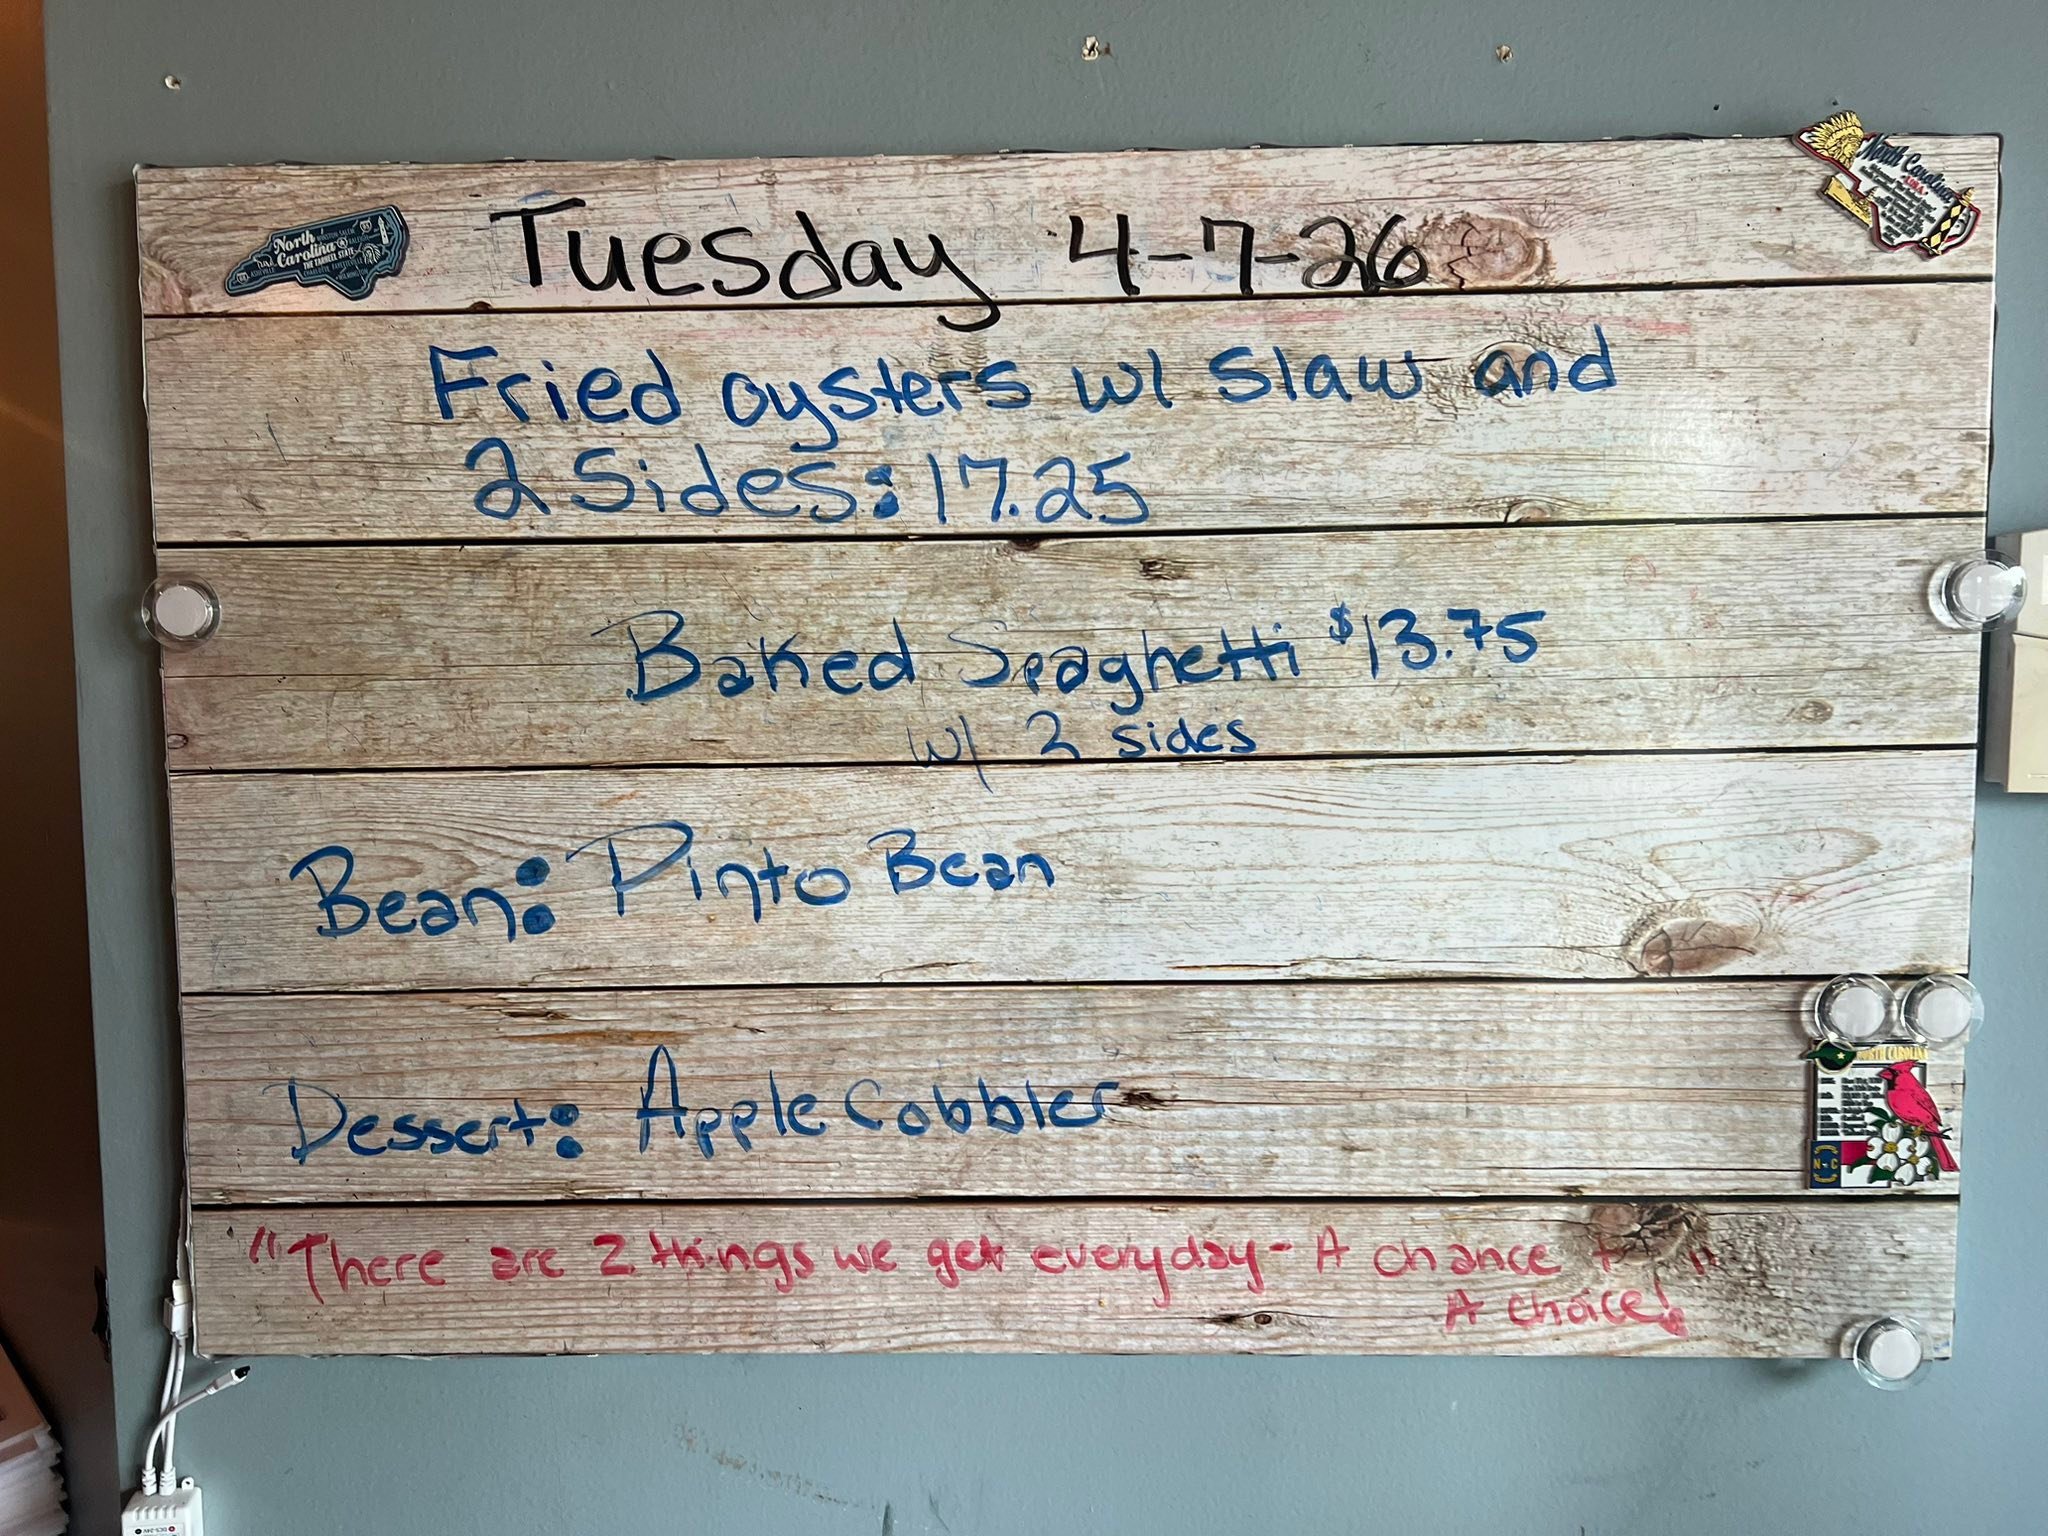 Tuesday 4-7-26
Fried oysters w/ slaw and
2 Sides: 17.25
Baked Spaghetti $13.75
w/ 2 sides
Bean: Pinto Bean
Dessert: Apple Cobbler
"There are 2 things we get everyday - A chance
A choice!
North Carolina
THE TARHEEL STATE
WINSTON-SALEM
RALEIGH
ASHEVILLE
CHARLOTTE FAYETTEVILLE
WILMINGTON
North Carolina
NORTH CAROLINA
N C